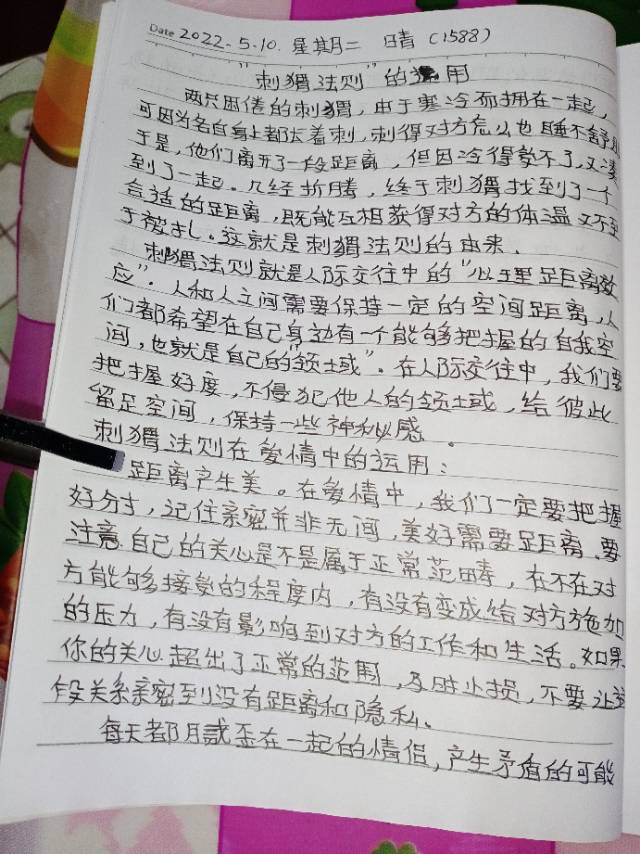 Date 2022.5.10. 星期二 晴 (1588)
"刺猬法则"的运用
两只困倦的刺猬，由于寒冷而拥在一起，
可因为各自身上都长着刺，刺得对方怎么也睡不舒服
于是，他们离开了一段距离，但因冷得受不了，又凑
到了一起。几经折腾，终于刺猬找到了一个
合适的距离，既能互相获得对方的体温又不至
于被扎。这就是刺猬法则的由来.
刺猬法则就是人际交往中的"心理距离效
应"。人和人之间需要保持一定的空间距离，人
们都希望在自己身边有一个能够把握的自我空
间，也就是自己的"领域"。在人际交往中，我们要
把握好度，不侵犯他人的领土或，给彼此
留足空间，保持一些神秘感。
刺猬法则在爱情中的运用：
距离产生美。在爱情中，我们一定要把握
好分寸，记住亲密并非无间，美好需要距离.要
注意自己的关心是不是属于正常范畴，在不在对
方能够接受的程度内，有没有变成给对方施加
的压力，有没有影响到对方的工作和生活。如果
你的关心超出了正常的范围，及时止损，不要让这
段关系亲密到没有距离和隐私.
每天都腻歪在一起的情侣，产生矛盾的可能